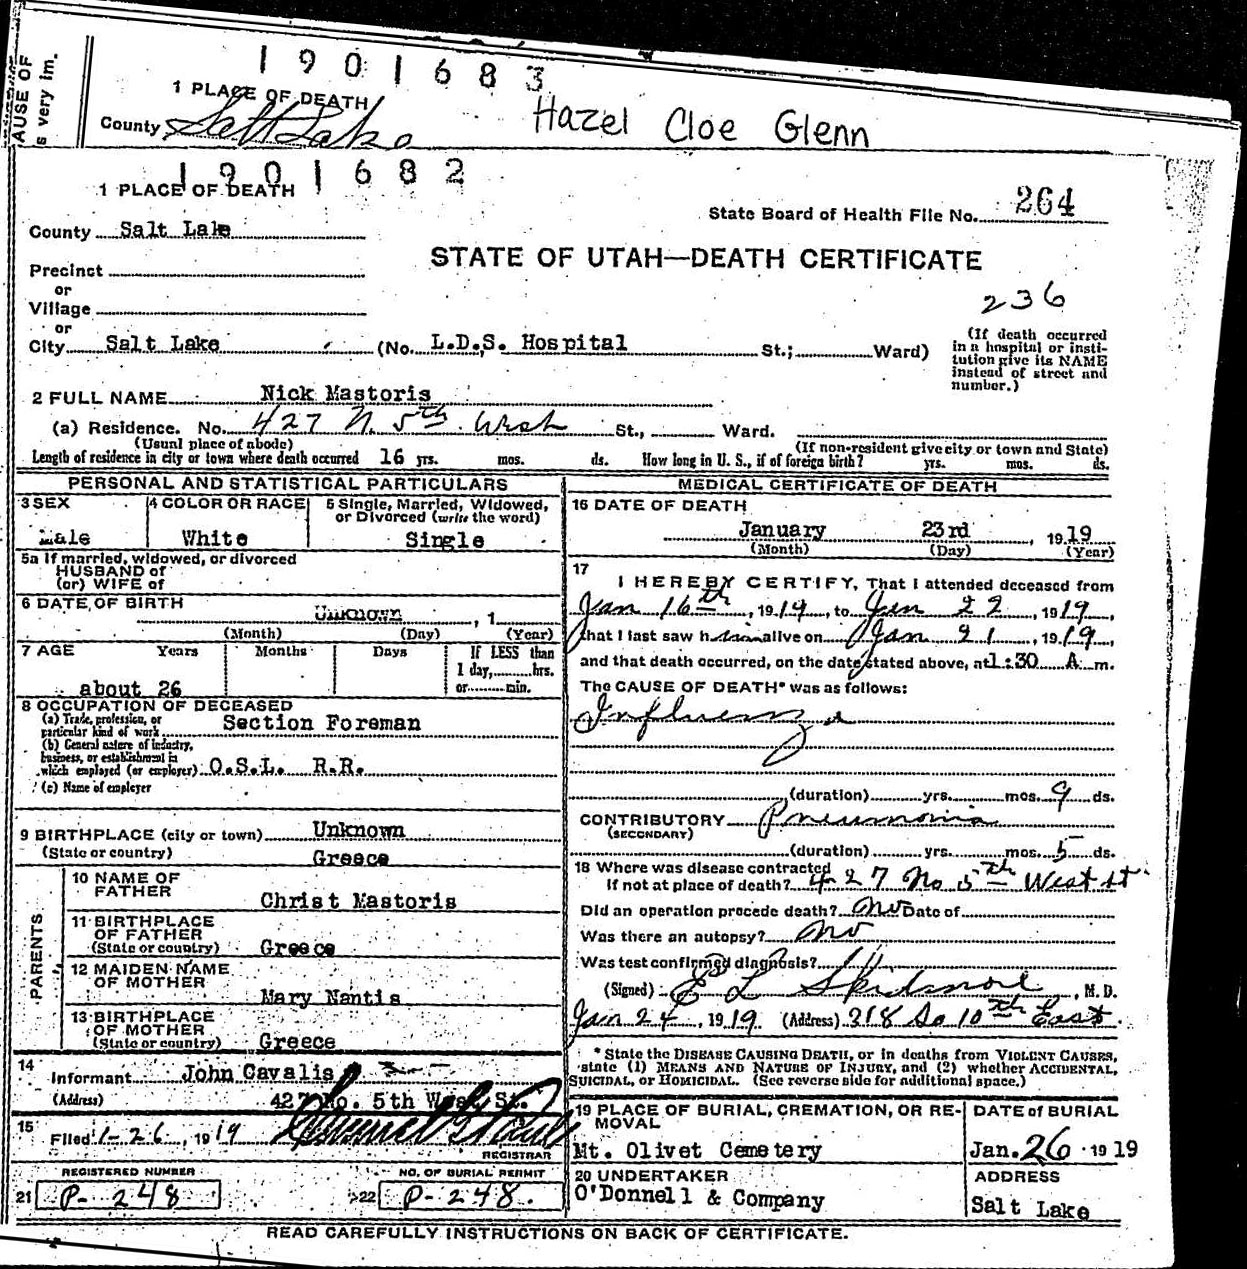 AUSE OF
s very im.
1901683
1 PLACE OF DEATH
County Salt Lake
Hazel Cloe Glenn
1901682
1 PLACE OF DEATH
State Board of Health File No. 264
County Salt Lake
STATE OF UTAH—DEATH CERTIFICATE
Precinct
236
or
Village
or
City Salt Lake (No. L.D.S. Hospital St.; Ward)
(If death occurred
in a hospital or insti-
tution give its NAME
instead of street and
number.)
2 FULL NAME Nick Mastoris
(a) Residence. No. 427 N. 5th West St., Ward.
(Usual place of abode) (If non-resident give city or town and State)
Length of residence in city or town where death occurred 16 yrs. mos. ds. How long in U. S., if of foreign birth? yrs. mos. ds.
PERSONAL AND STATISTICAL PARTICULARS
3 SEX 4 COLOR OR RACE 5 Single, Married, Widowed,
or Divorced (write the word)
Male White Single
5a If married, widowed, or divorced
HUSBAND of
(or) WIFE of
6 DATE OF BIRTH Unknown , 1
(Month) (Day) (Year)
7 AGE Years Months Days If LESS than
1 day, hrs.
or min.
about 26
8 OCCUPATION OF DECEASED
(a) Trade, profession, or
particular kind of work Section Foreman
(b) General nature of industry,
business, or establishment in
which employed (or employer) O.S.L. R.R.
(c) Name of employer
9 BIRTHPLACE (city or town) Unknown
(State or country) Greece
PARENTS
10 NAME OF
FATHER Christ Mastoris
11 BIRTHPLACE
OF FATHER
(State or country) Greece
12 MAIDEN NAME
OF MOTHER
Mary Nantis
13 BIRTHPLACE
OF MOTHER
(State or country) Greece
14
Informant John Cavalis
(Address) 427 No. 5th West St.
15
Filed 1-26, 1919
REGISTRAR
REGISTERED NUMBER NO. OF BURIAL PERMIT
21 P-248 22 P-248.
MEDICAL CERTIFICATE OF DEATH
16 DATE OF DEATH
January 23rd , 1919
(Month) (Day) (Year)
17
I HEREBY CERTIFY, That I attended deceased from
Jan 16th, 1919, to Jan 22, 1919,
that I last saw him alive on Jan 21, 1919,
and that death occurred, on the date stated above, at 1:30 A. m.
The CAUSE OF DEATH* was as follows:
Influenza
(duration) yrs. mos. 9 ds.
CONTRIBUTORY Pneumonia
(SECONDARY)
(duration) yrs. mos. 5 ds.
18 Where was disease contracted
If not at place of death? 427 No 5th West St
Did an operation precede death? No Date of
Was there an autopsy? No
Was test confirmed diagnosis?
(Signed) E L Skidmore, M.D.
Jan 24, 1919 (Address) 318 So 10th East.
* State the DISEASE CAUSING DEATH, or in deaths from VIOLENT CAUSES,
state (1) MEANS AND NATURE OF INJURY, and (2) whether ACCIDENTAL,
SUICIDAL, or HOMICIDAL. (See reverse side for additional space.)
19 PLACE OF BURIAL, CREMATION, OR RE-
MOVAL
DATE of BURIAL
Mt. Olivet Cemetery Jan. 26 1919
20 UNDERTAKER ADDRESS
O'Donnell & Company Salt Lake
READ CAREFULLY INSTRUCTIONS ON BACK OF CERTIFICATE.